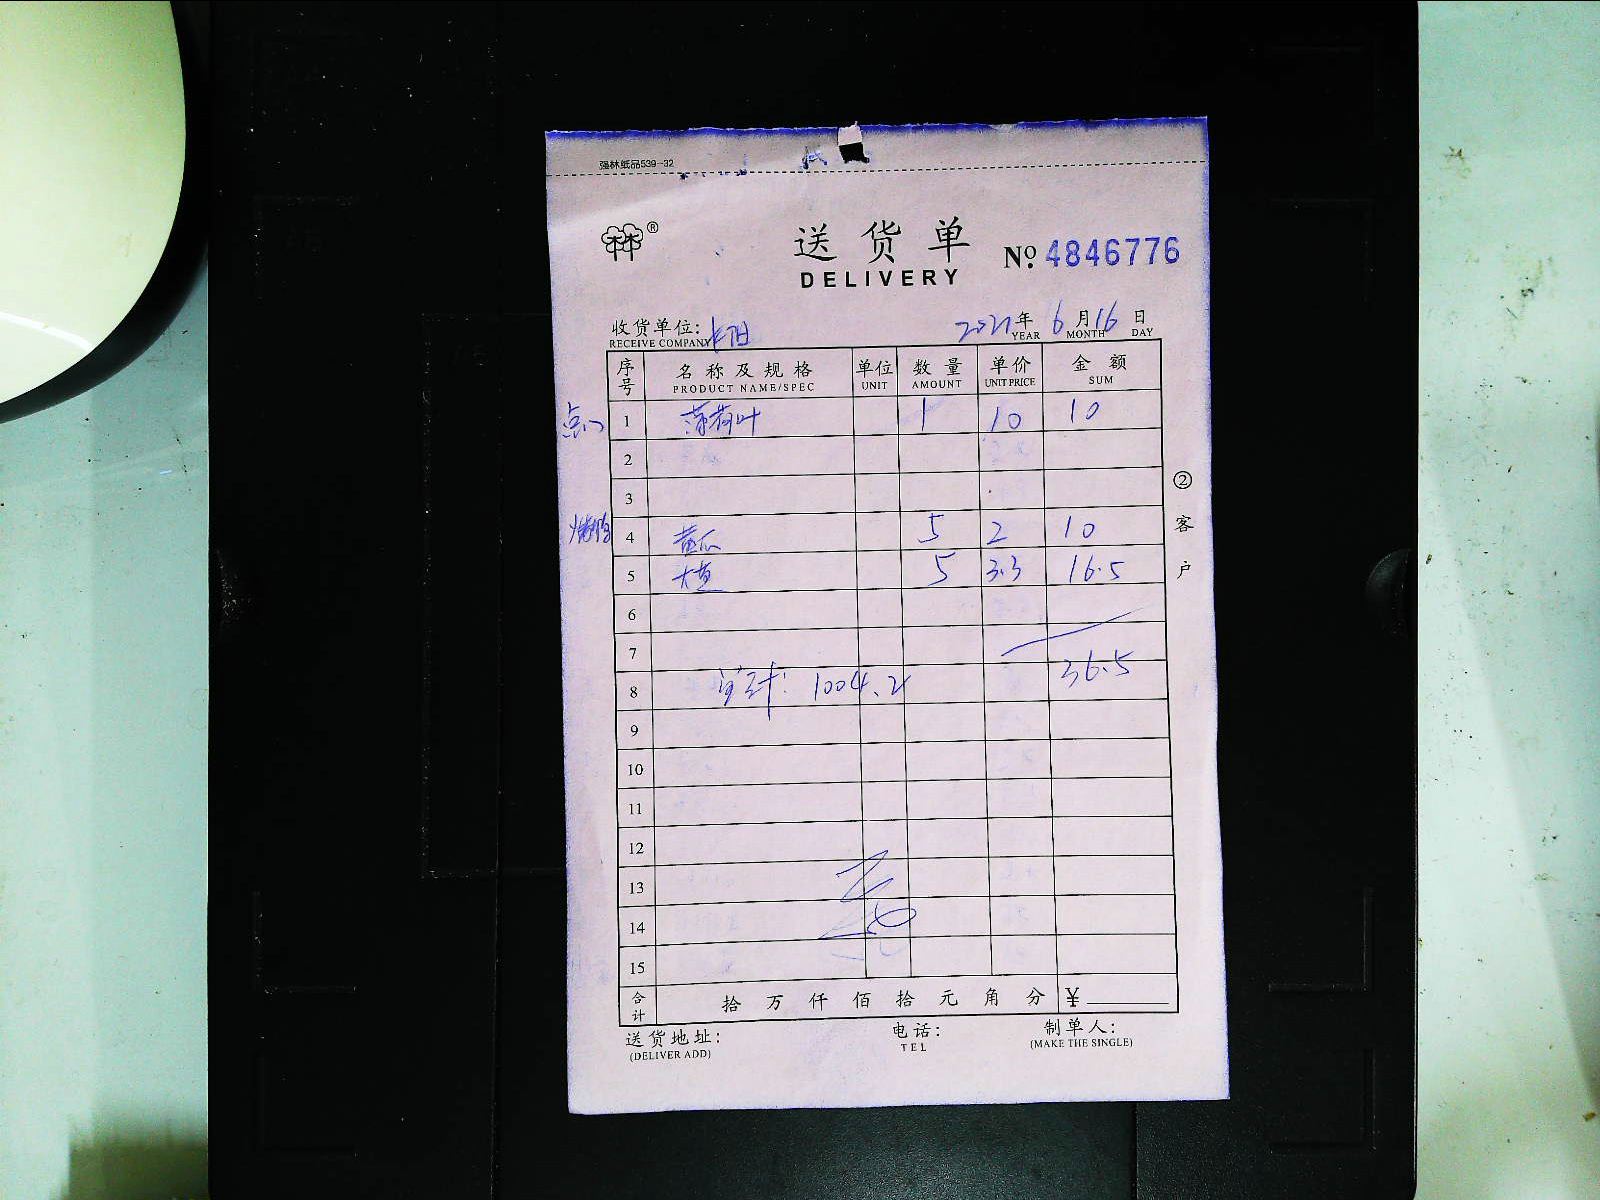 强林纸品539-32
林林®
送货单 No. 4846776
DELIVERY
收货单位:
RECEIVE COMPANY
2021年 6月16日
YEAR MONTH DAY
序号 名称及规格 单位 数量 单价 金额
PRODUCT NAME/SPEC UNIT AMOUNT UNIT PRICE SUM
点心 1 薄荷叶 1 10 10
2
3
烧腊 4 黄瓜 5 2 10
5 大葱 5 3.3 16.5
6
7
8 总计: 1004.2 36.5
9
10
11
12
13
14
15
合计 拾 万 仟 佰 拾 元 角 分 ¥
② 客户
送货地址: 电话: 制单人:
(DELIVER ADD) TEL (MAKE THE SINGLE)